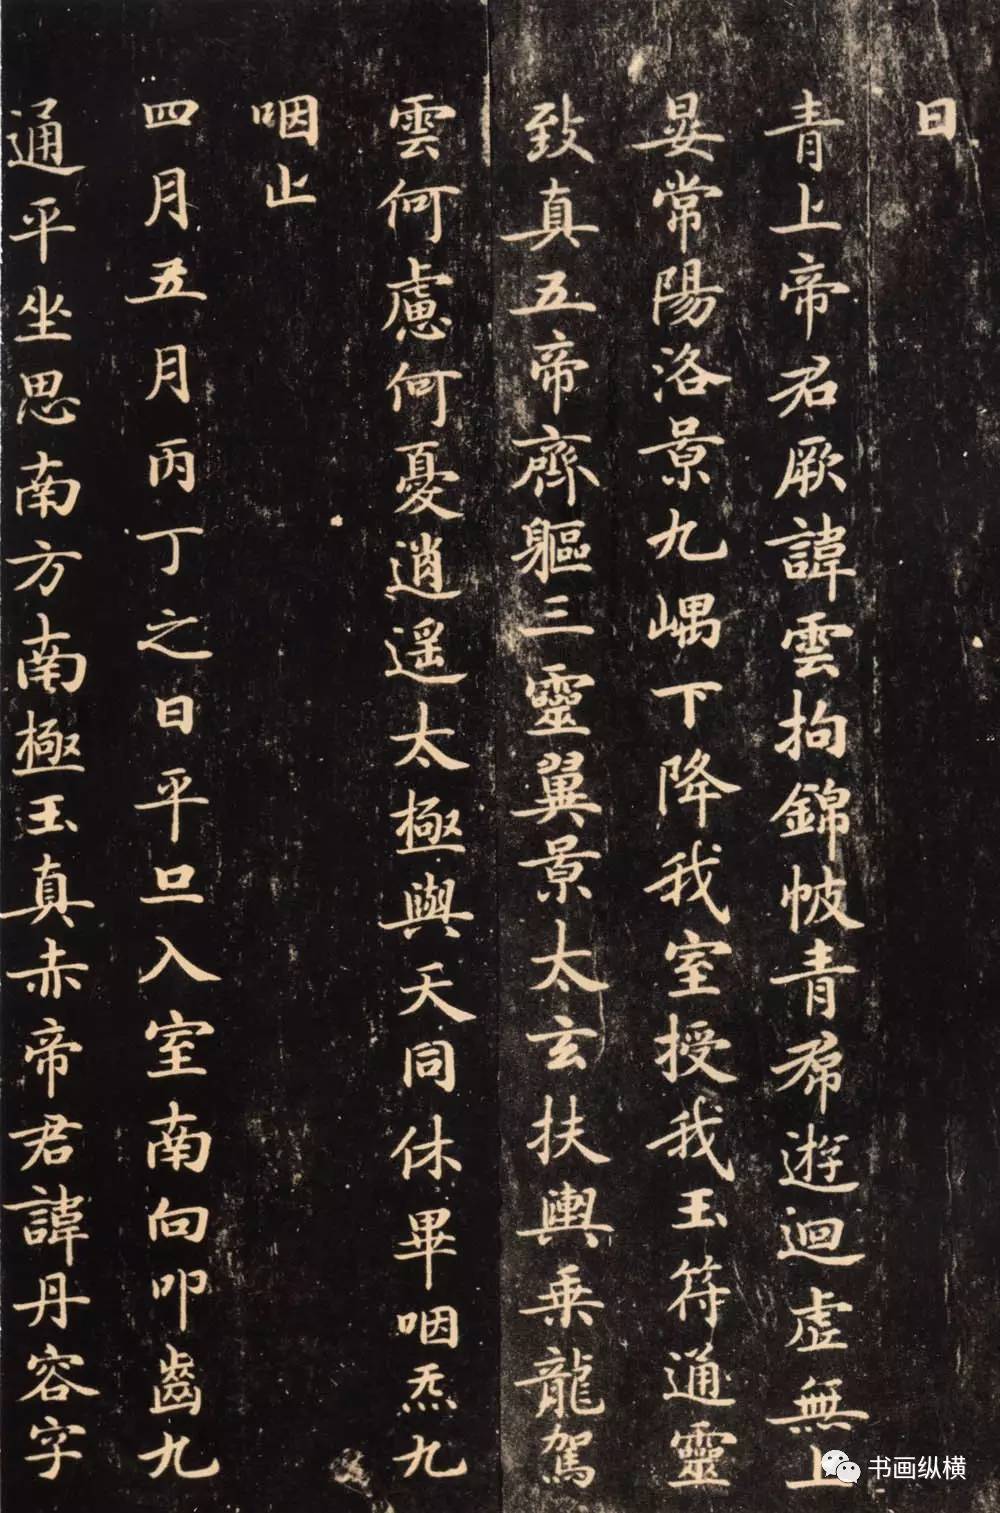 曰
青上帝君厥諱雲拘錦帔青帬遊迴虛無上
晏常陽洛景九嵎下降我室授我玉符通靈
致真五帝齊軀三靈翼景太玄扶輿乘龍駕
雲何慮何憂逍遥太極與天同休畢咽炁九
咽止
四月五月丙丁之日平旦入室南向叩齒九
通平坐思南方南極玉真赤帝君諱丹容字
书画纵横